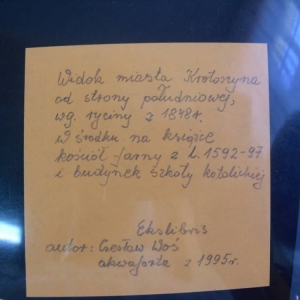 Widok miasta Krotoszyna
od strony południowej,
wg. ryciny z 1848r.
W środku na książce
kościół farny z l. 1592-97
i budynek szkoły katolickiej
Ekslibris
autor: Czesław Woś
akwaforta z 1995r.